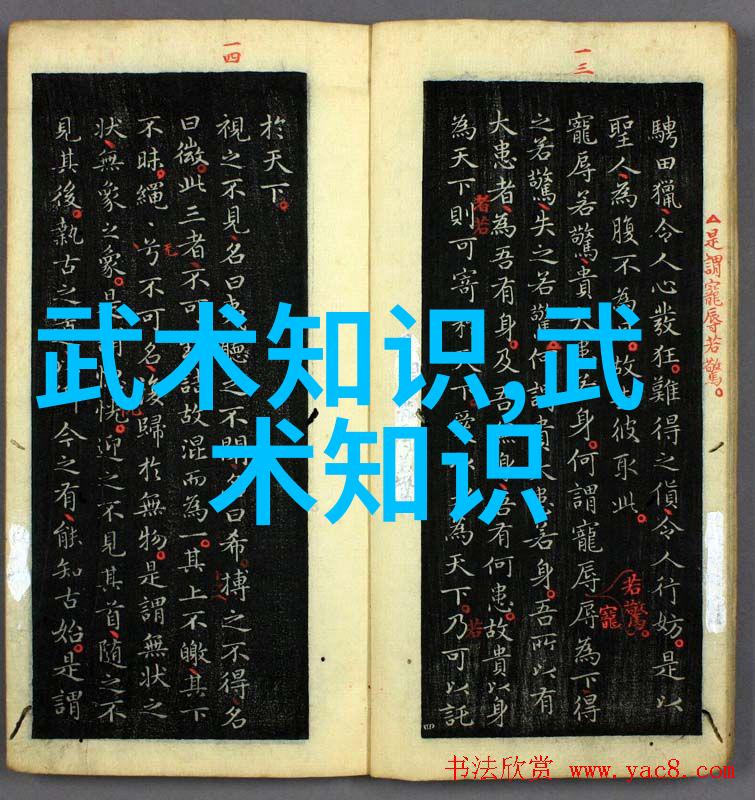 一三
騁田獵令人心發狂。難得之貨令人行妨。是以
聖人為腹不為 故 彼取此。
寵辱若驚貴大患 身。何謂寵辱辱為下得
之若驚失之若驚 謂貴大患若身。吾所以有
大患者為吾有身。及吾 身吾有何患。故貴以身
為天下則可寄於天下。愛 為天下。乃可以託
△是謂寵辱若驚。
者若
若驚。
寵
若
一四
於天下。
視之不見名曰夷聽之不聞名曰希搏之不得名
曰微。此三者不可 詰故混而為一。其上不皦其下
不昧。繩〻兮不可名。復歸於無物。是謂無狀之
狀無象之象。是謂 迎之不見其首隨之不
見其後。執古之道 今之有。能知古始。是謂
武术知识,武
术知识
书法欣赏 www.yac8.com